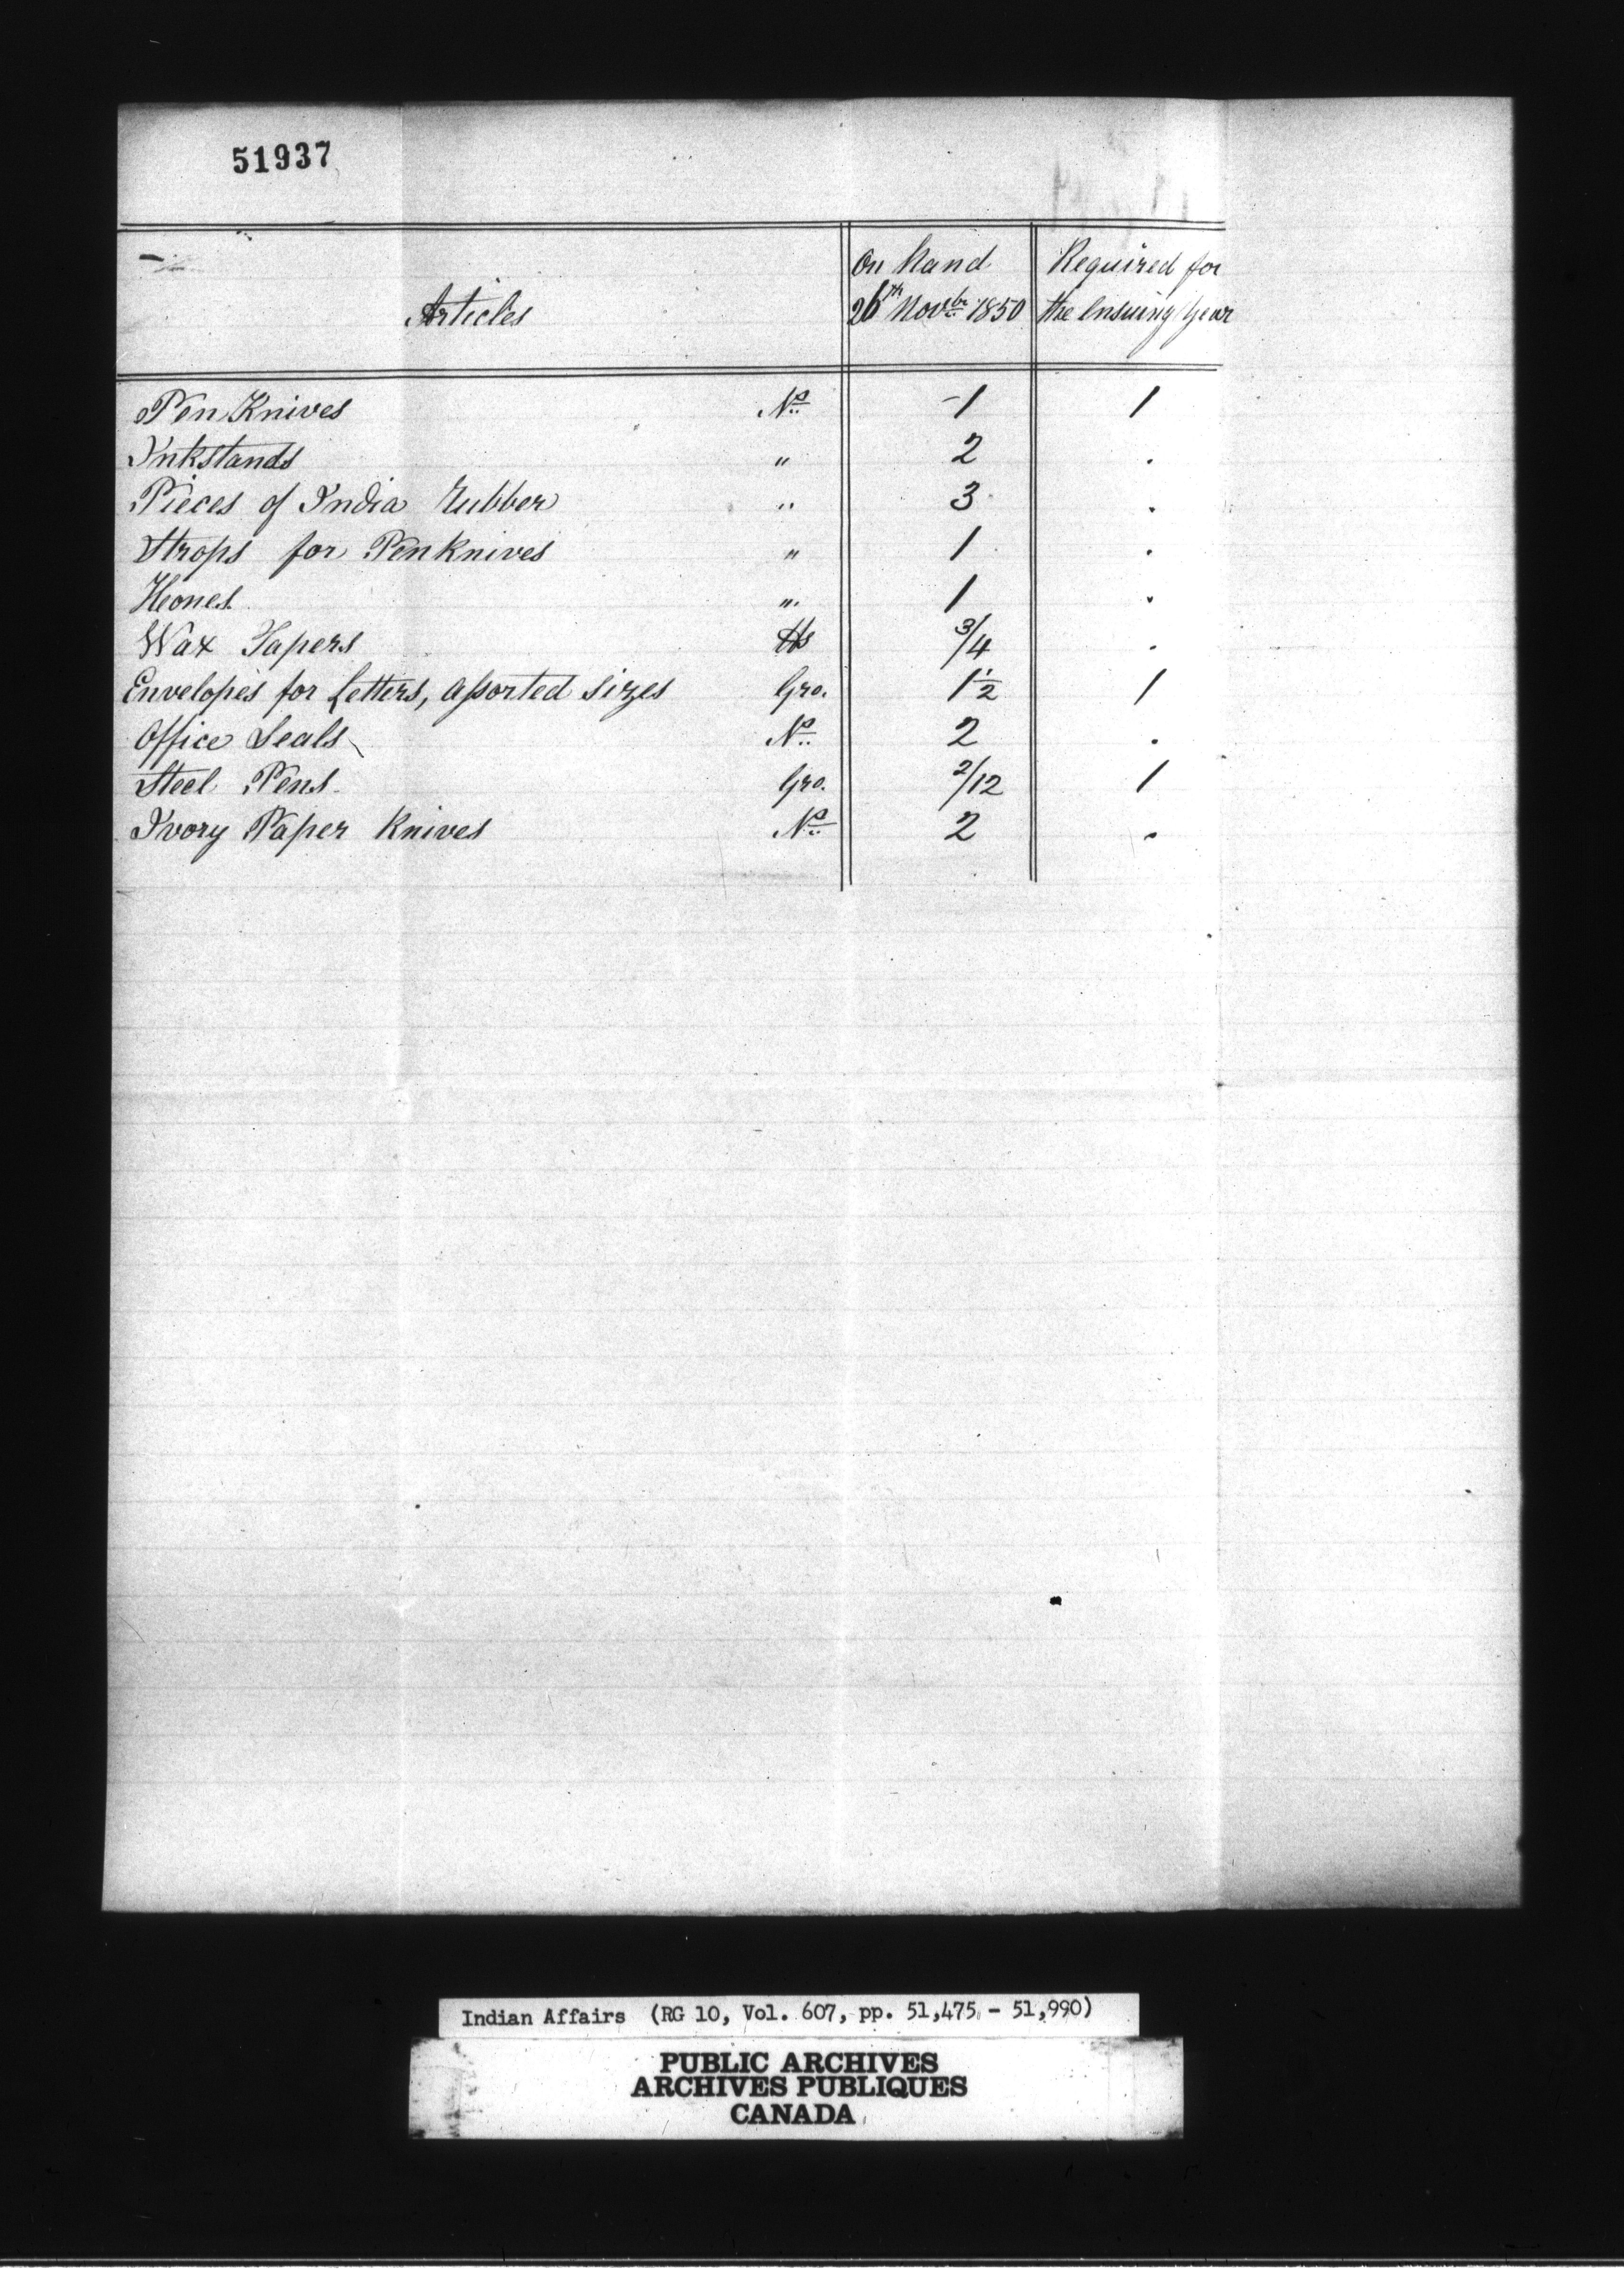 51937
On Hand Required for
Articles 26th Novbr 1850 the Ensuing Year
Pen Knives No. 1 1
Inkstands " 2 .
Pieces of India Rubber " 3 .
Strops for Penknives " 1 .
Heones " 1 .
Wax Tapers lbs 3/4 .
Envelopes for Letters, assorted sizes Gro. 1 1/2 1
Office Seals No. 2 .
Steel Pens Gro. 2/12 1
Ivory Paper Knives No. 2 .
Indian Affairs (RG 10, Vol. 607, pp. 51,475 - 51,990)
PUBLIC ARCHIVES
ARCHIVES PUBLIQUES
CANADA